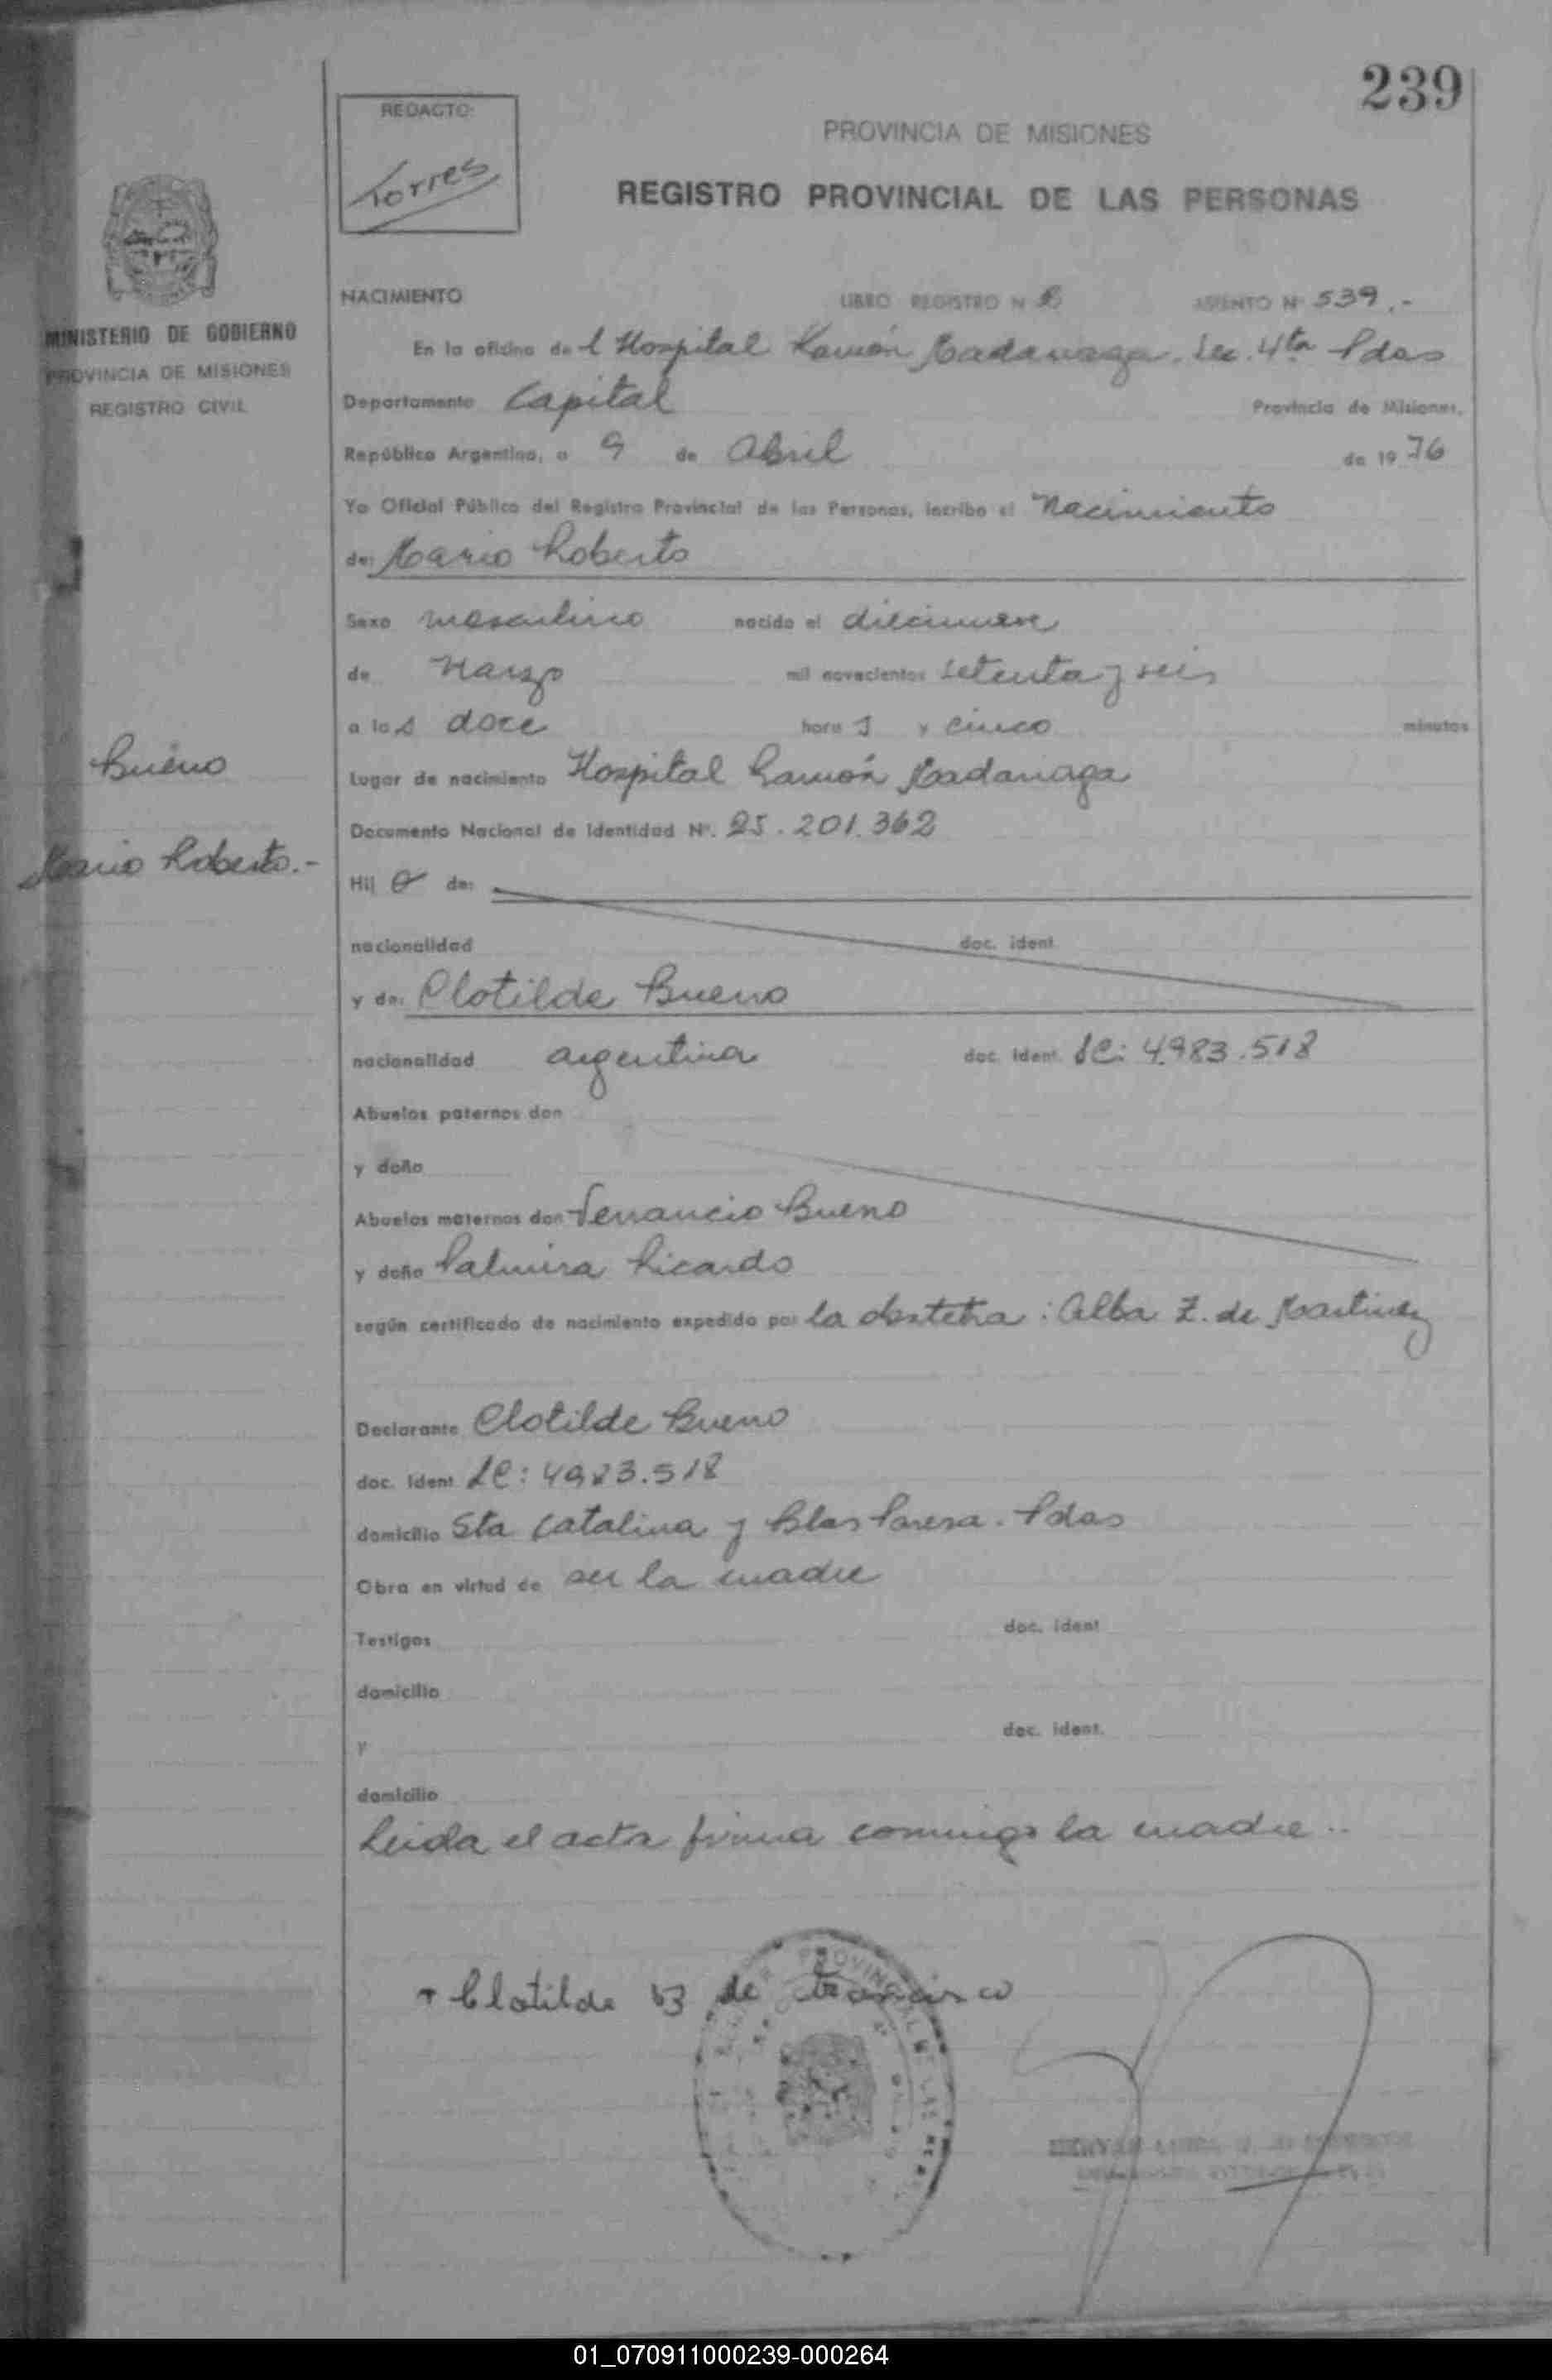 239
REDACTO:
Torres
PROVINCIA DE MISIONES
REGISTRO PROVINCIAL DE LAS PERSONAS
MINISTERIO DE GOBIERNO
PROVINCIA DE MISIONES
REGISTRO CIVIL
NACIMIENTO LIBRO REGISTRO N B ASIENTO Nº 539.-
En la oficina de l Hospital Ramón Madariaga. Sec. 4ta Pdas
Departamento Capital Provincia de Misiones,
República Argentina, a 9 de Abril de 19 76
Yo Oficial Público del Registro Provincial de las Personas, incribo el Nacimiento
de: Mario Roberto
Sexo masculino nacido el diecinueve
de Marzo mil novecientos setenta y seis
a las doce hora s y cinco minutos
Bueno
Mario Roberto.-
Lugar de nacimiento Hospital Ramón Madariaga
Documento Nacional de Identidad Nº. 25.201.362
Hij o de:
nacionalidad doc. ident.
y de: Clotilde Bueno
nacionalidad argentina doc. ident. LC: 4.983.518
Abuelos paternos don
y doña
Abuelos maternos don Venancio Bueno
y doña Palmira Ricardo
según certificado de nacimiento expedido por la obstetra: Alba Z. de Martinez
Declarante Clotilde Bueno
doc. ident LC: 4983.518
domicilio Sta Catalina y Blas Parera. Pdas
Obra en virtud de ser la madre
Testigos doc. ident
domicilio
y doc. ident.
domicilio
Leida el acta firma conmigo la madre..
Clotilde B de Francisco
01_070911000239-000264